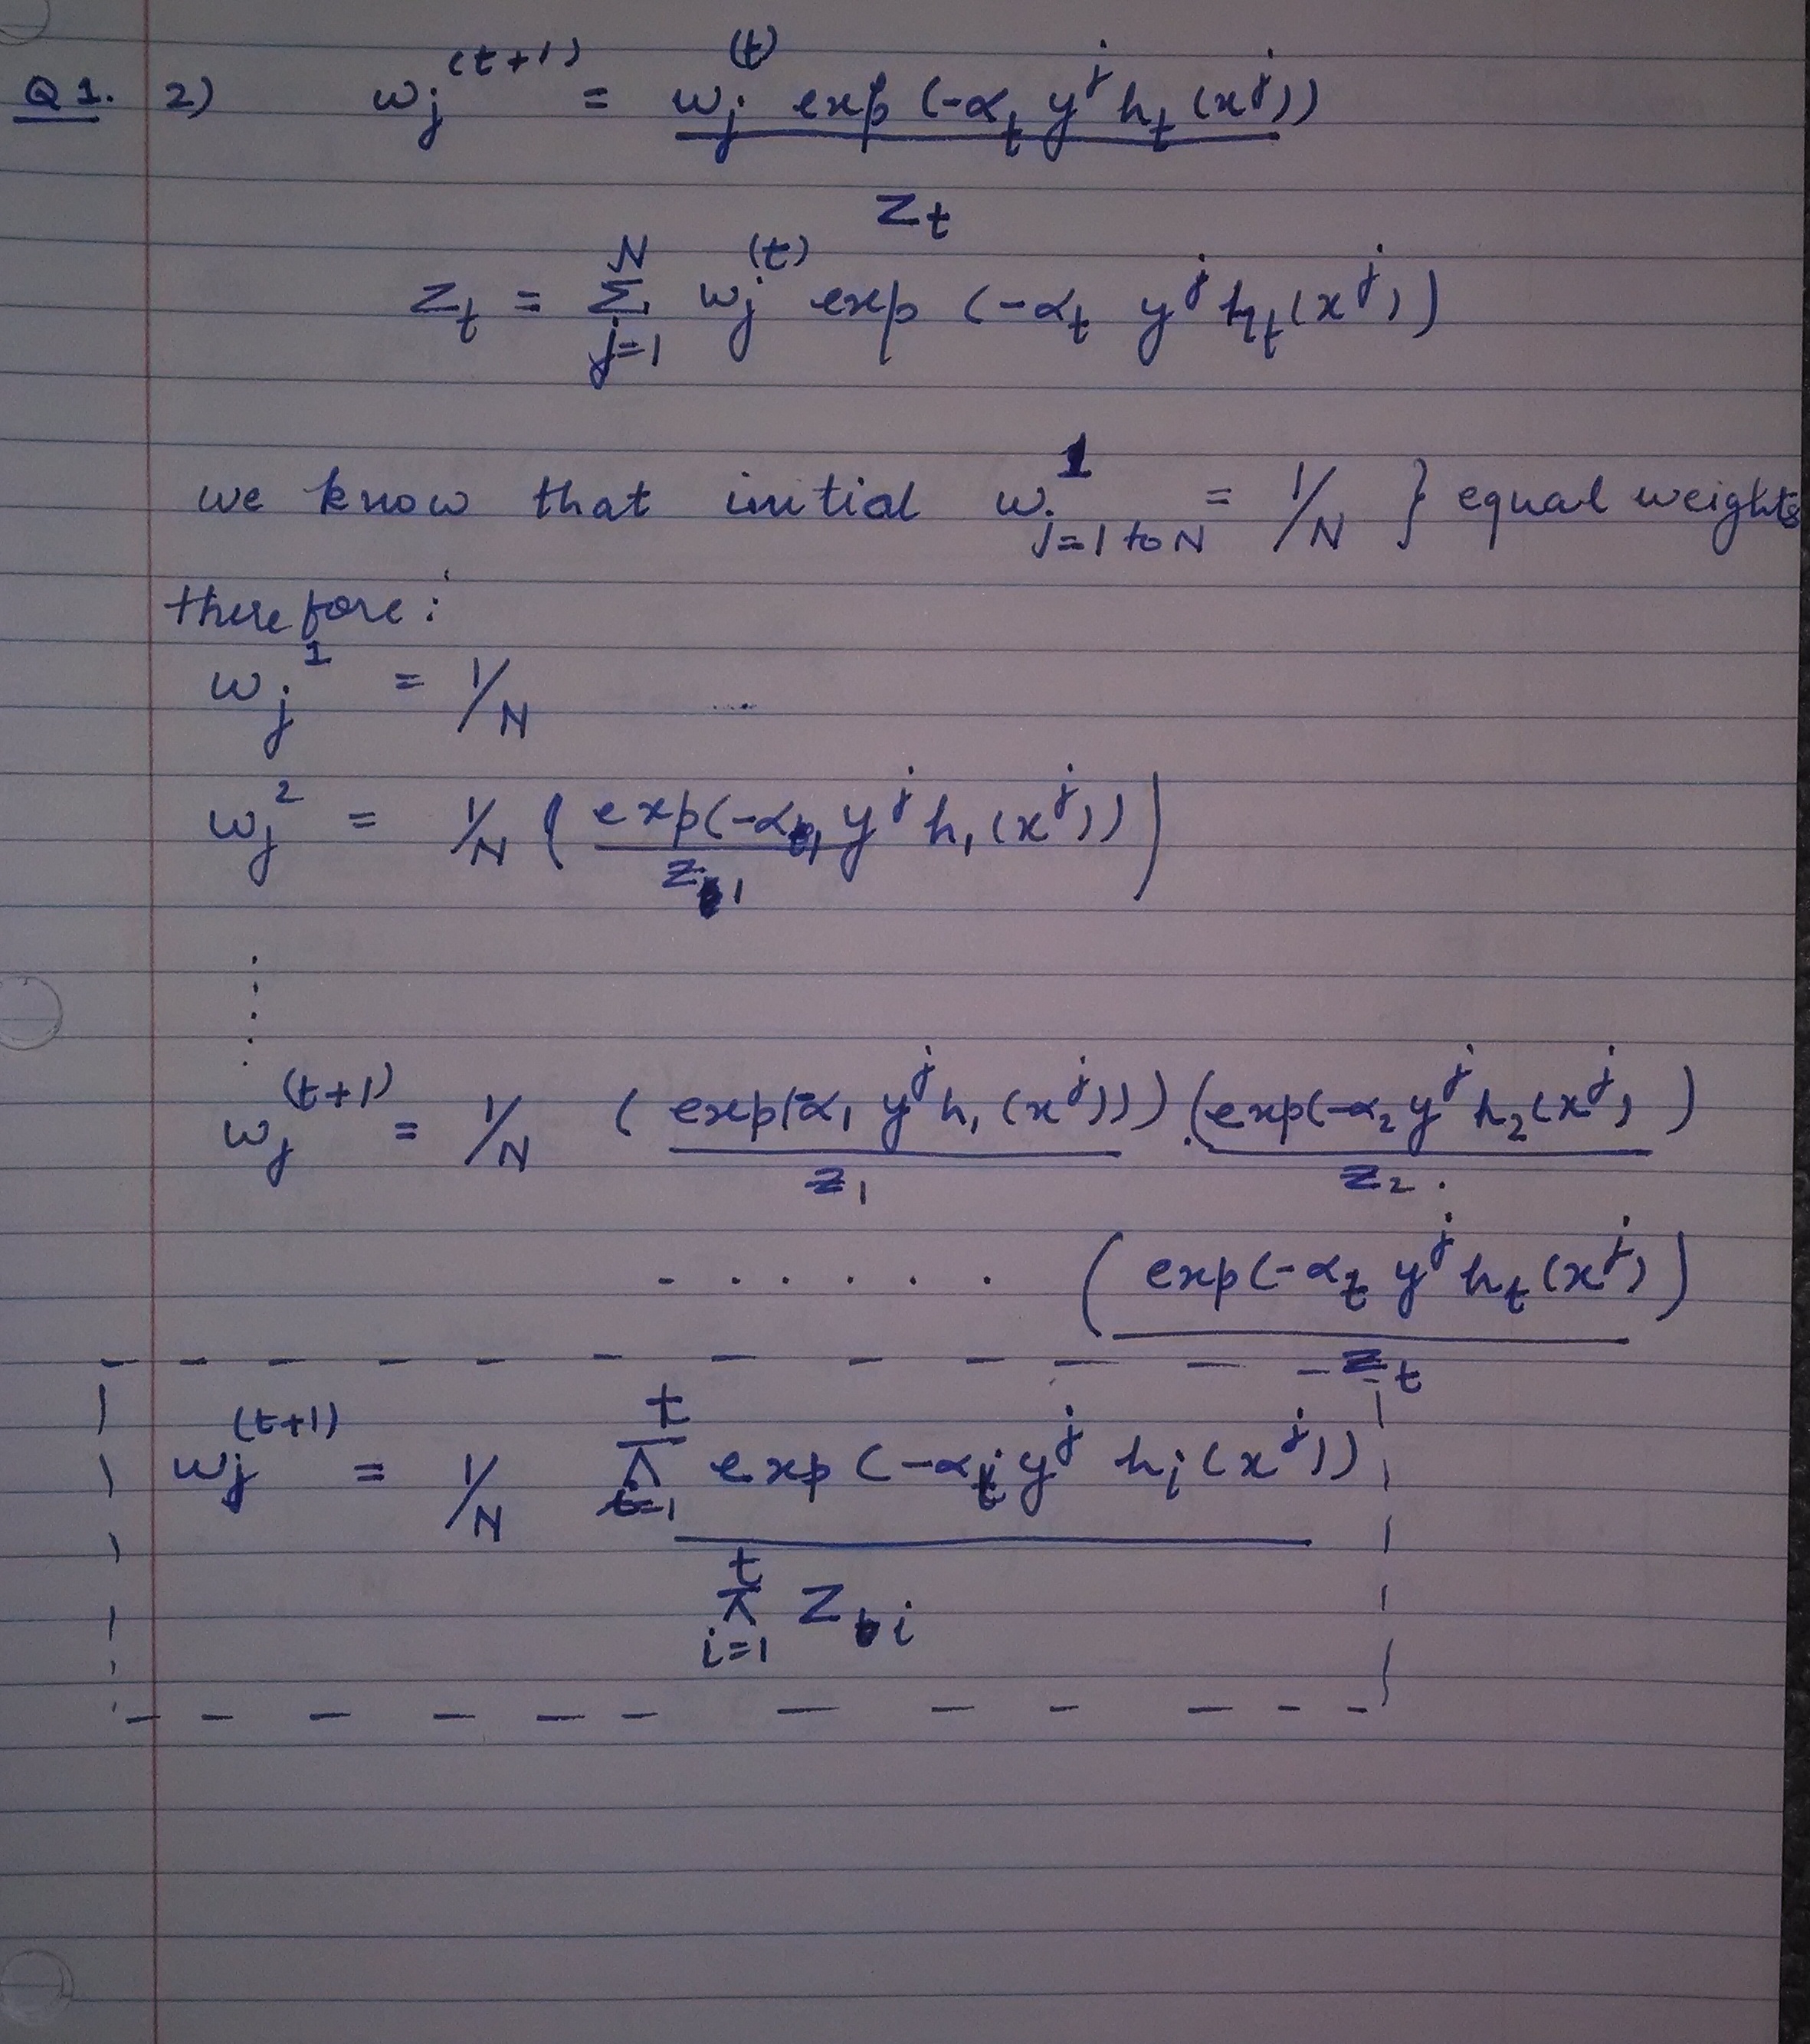 Q1. 2) w_j^(t+1) = w_j^(t) exp(-α_t y^j h_t(x^j))
z_t
z_t = Σ_{j=1}^{N} w_j^(t) exp(-α_t y^j h_t(x^j))
we know that initial w^1_{j=1 to N} = 1/N } equal weights
therefore:
w_j^1 = 1/N
w_j^2 = 1/N ( exp(-α_1 y^j h_1(x^j)) )
z_1
w_j^(t+1) = 1/N ( exp(-α_1 y^j h_1(x^j)) ) . ( exp(-α_2 y^j h_2(x^j) )
z_1 z_2 .
. . . . . . . ( exp(-α_t y^j h_t(x^j) )
z_t
w_j^(t+1) = 1/N π_{i=1}^{t} exp(-α_i y^j h_i(x^j))
π_{i=1}^{t} z_i